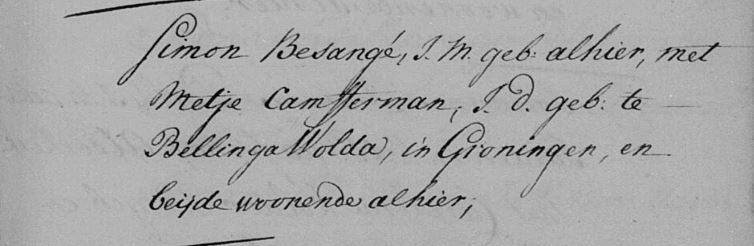 Simon Besangé, J. M. geb: alhier, met
Metje Camfferman, J. d. geb: te
Bellinga Wolda, in Groningen, en
beijde woonende alhier;